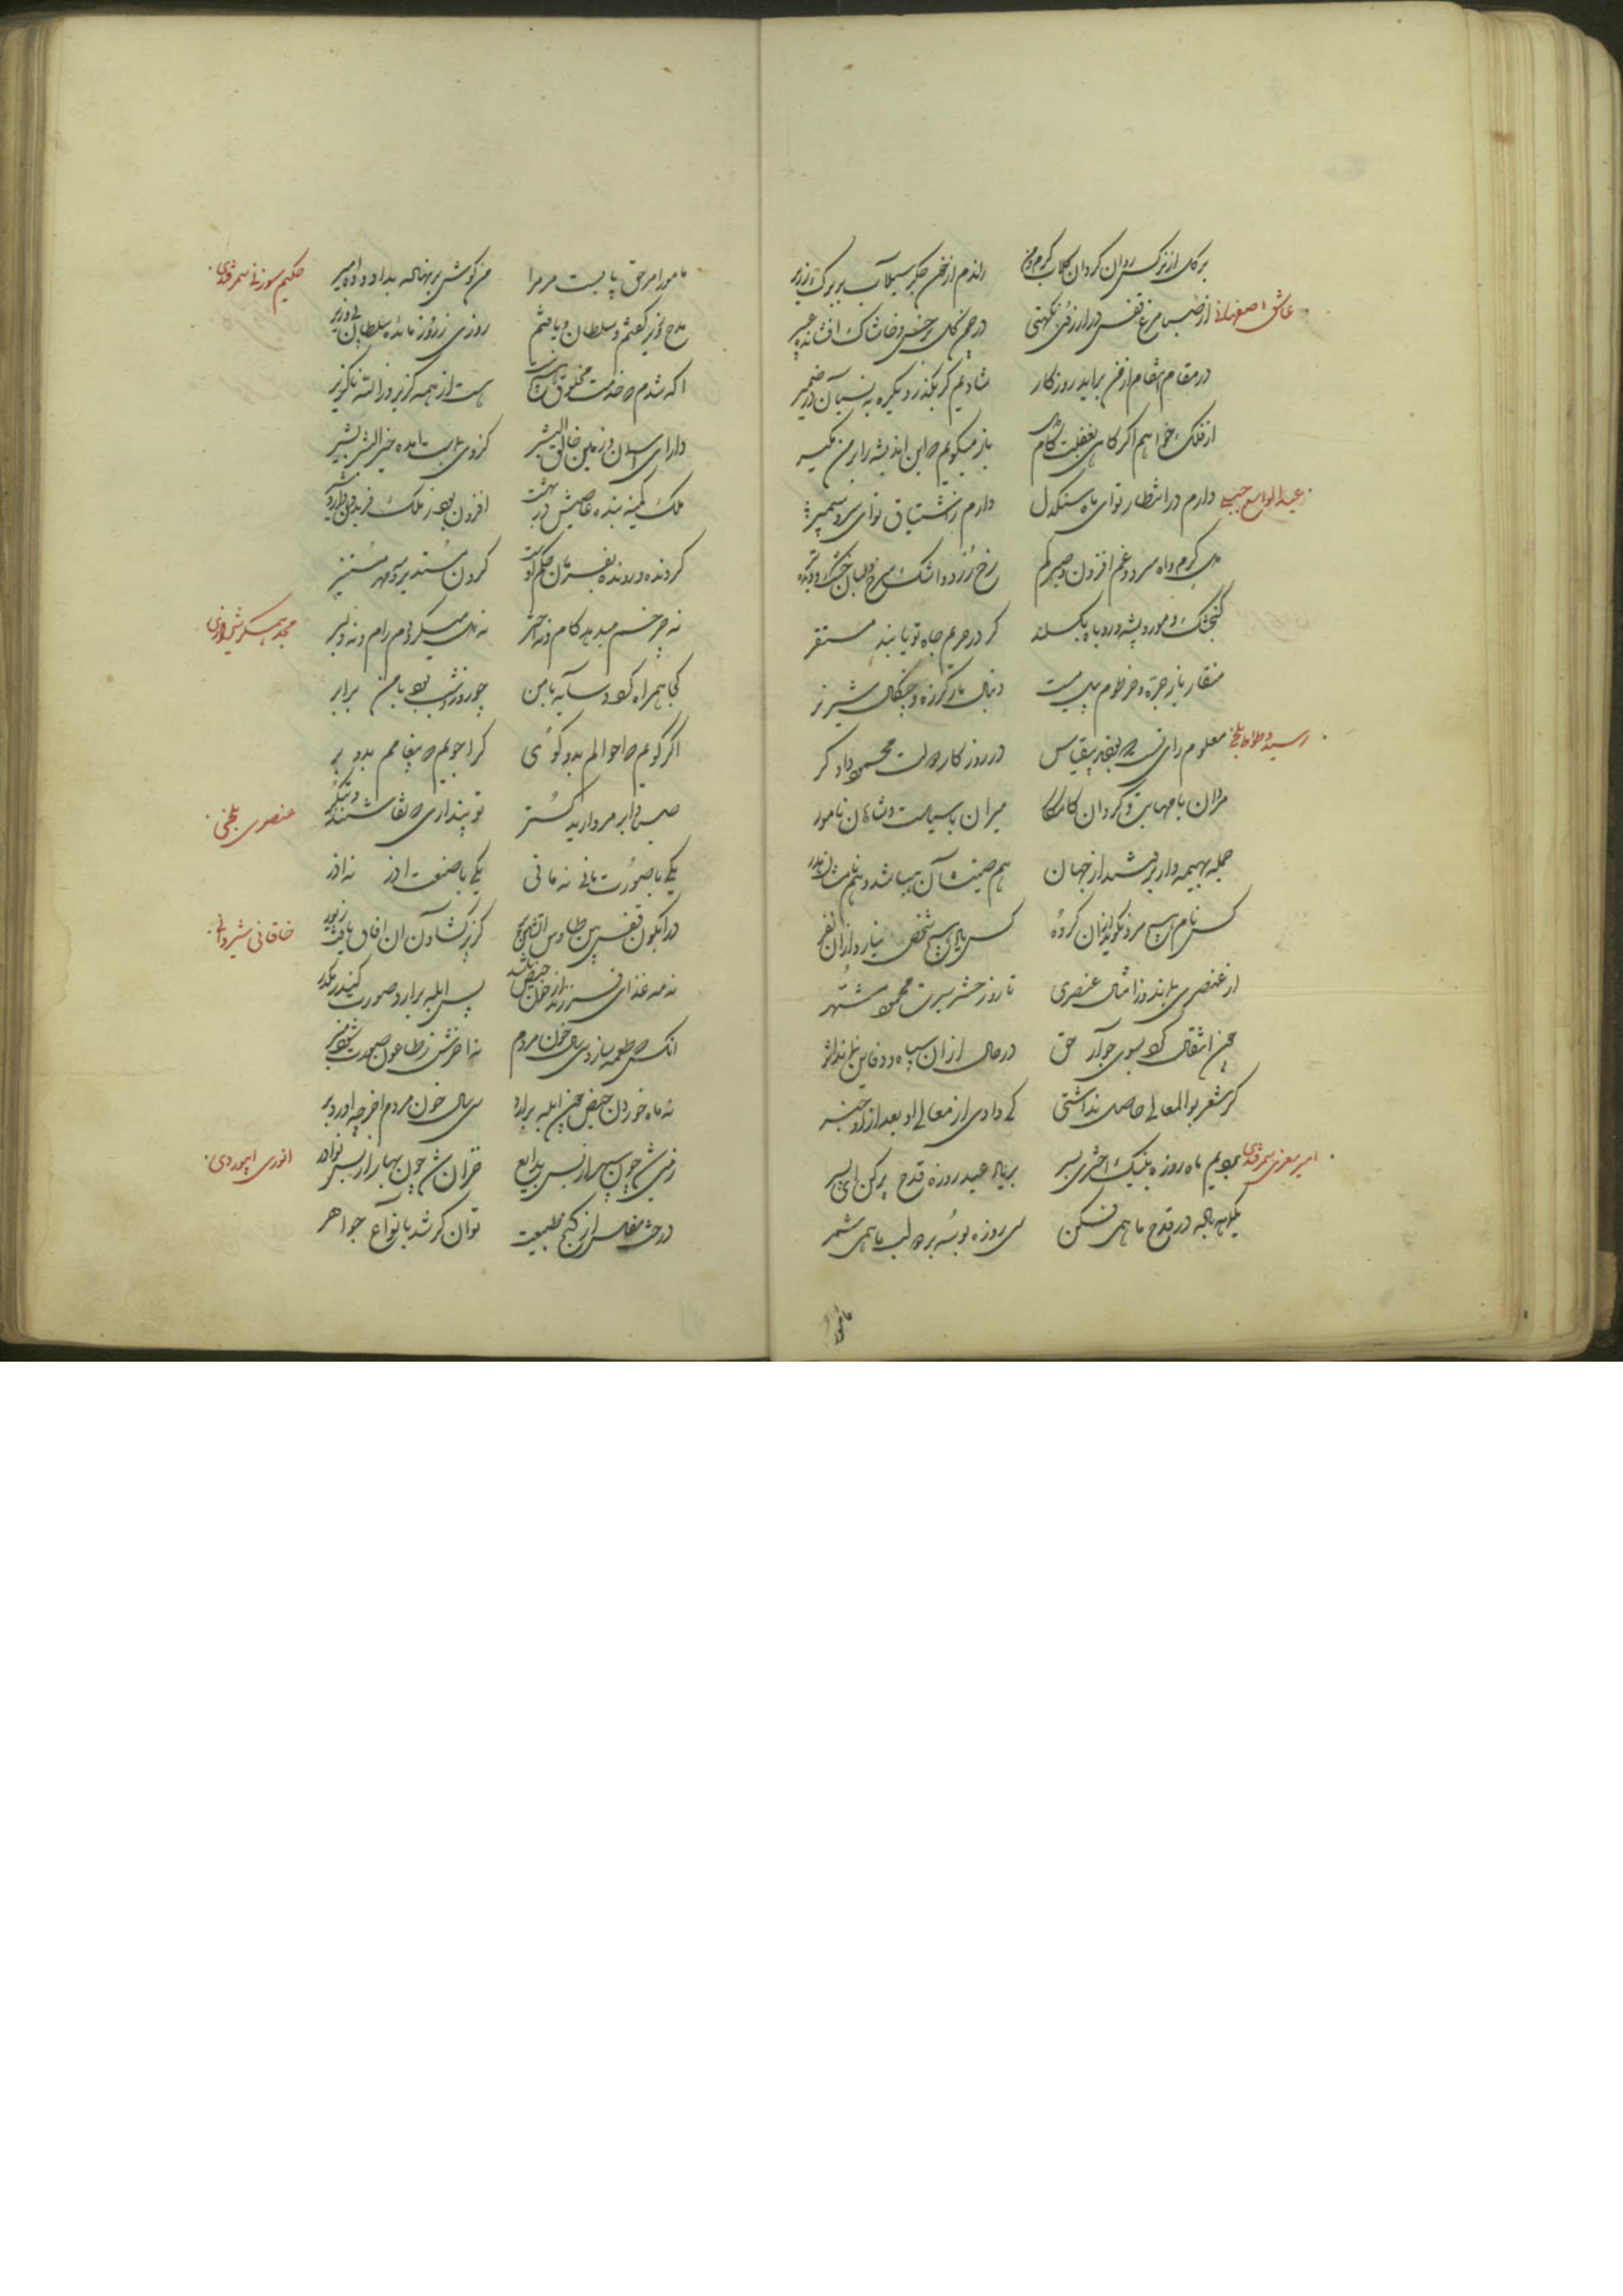 بر گل از نرگس روان کرد آن گلاب گرم و من راندم از خون جگر سیلاب بر برگ زریر
عاشق اصفهانی از صبا مرغ قفس در ارزوی نکهتی در چمن گل بر خس و خاشاک افشانده عبیر
در مقام انتقام از من براید روزکار شادیم کر بگذرد یکره به نسیان در ضمیر
از فلک خواهم اگر گاهی بغفلت کام باز میگویم که این اندیشه را بر من مگیر
عبد الواسع جبلی دارم در انتظار تو ای ماه سنگدل دارم ز اشتیاق تو ای سرو سیمبر
دل گرم و اه سرد و غم افزون و صبر کم رخ زرد و اشک سرخ و لبان خشک و دیده تر
گنجشک و مور و پشه و روباه بگسلند کر در حریم جاه تو یابند مستقر
منقار باز جره و خرطوم پیل مست دنبال مار گرزه و چنگال شیر نر
رشید وطواط بلخی معلوم رای تست که بودند بیقیاس در روزکار دولت محمود دادکر
مردان با مهابت و گردان کامکار میران با سیاست و شاهان نامور
جمله بهیمه وار برفتند از جهان هم صیتشان هبا شد و هم نامشان هدر
کس نام هیچ مرد نگوید از آن گروه کس یاد هیچ شخص نیارد از آن نفر
از عنصری بماند و ز امثال عنصری تا روز حشر سیرت محمود مشتهر
چون انتقال کرد بسوی جوار حق در حال از آن سپاه و دفاین نماند اثر
کر شعر بوالمعالی حاصل نداشتی که دادی از معالی او بعد از او خبر
امیر معزی سمرقندی بودیم ماه روزه بنیک اختری بسر بر یاد عید روزه قدح پر کن ای پسر
یکماهه باده در قدح ما همی فکن سی روزه بوسه بر دو لب ما همی شمر
مامور
حکیم سوزنی سمرقندی مامور امر حق بایست مر مرا من گوش بر نهاده بداد و ده امیر
مدح وزیر گفتم و سلطان و یافتم روزی ز روز مائده سلطان بی وزیر
اکه شدم که خدمت مخلوق هست از همه گزیر و ز الله ناگزیر
دارای اسمان و زمین خالق البشر کز وی بما بیامده خیر البشر بشیر
ملک کمینه بنده عاصیش در بهشت افزون بود ز ملک فریدون و اردشیر
گردنده و رونده بفرمان حکم اوست گردون مستدیر و مه و مهر مستنیر
مجد همگر شیرازی نه چرخم میدهد کام و نه اختر نه دل میگرددم رام و نه دلبر
کی همراه کرد و سایه با من چو روز و شب بود با من برابر
اگر گویم که احوالم بدو گوی کرا جویم که پیغامم بدو بر
عنصری بلخی صبا و ابر مروارید گستر تو پنداری که نقاشند و بتگر
یکی با صورت مانی نه مانی یکی با صنعت اذر نه اذر
خاقانی شیروانی در ابگون قفس بین طاوس اتشین پر کز پر گشادن آن افاق یافت زیور
نه مه غذای فرزند از خون حیض باشد پس ابله برارد صورت کند مکدر
انکس که طعمه سازد سی سال خون مردم نه اخرش ز طاعون صورت شود مغیر
نه ماه خوردن حیض چون ابله برارد سی سال خون مردم اخر چه اورد بر
انوری ابیوردی زمین شد چون سپهر از بس بدایع خزان شد چون بهار از بس نوادر
درخت مفلس از گنج طبیعت توانگر شد بانواع جواهر